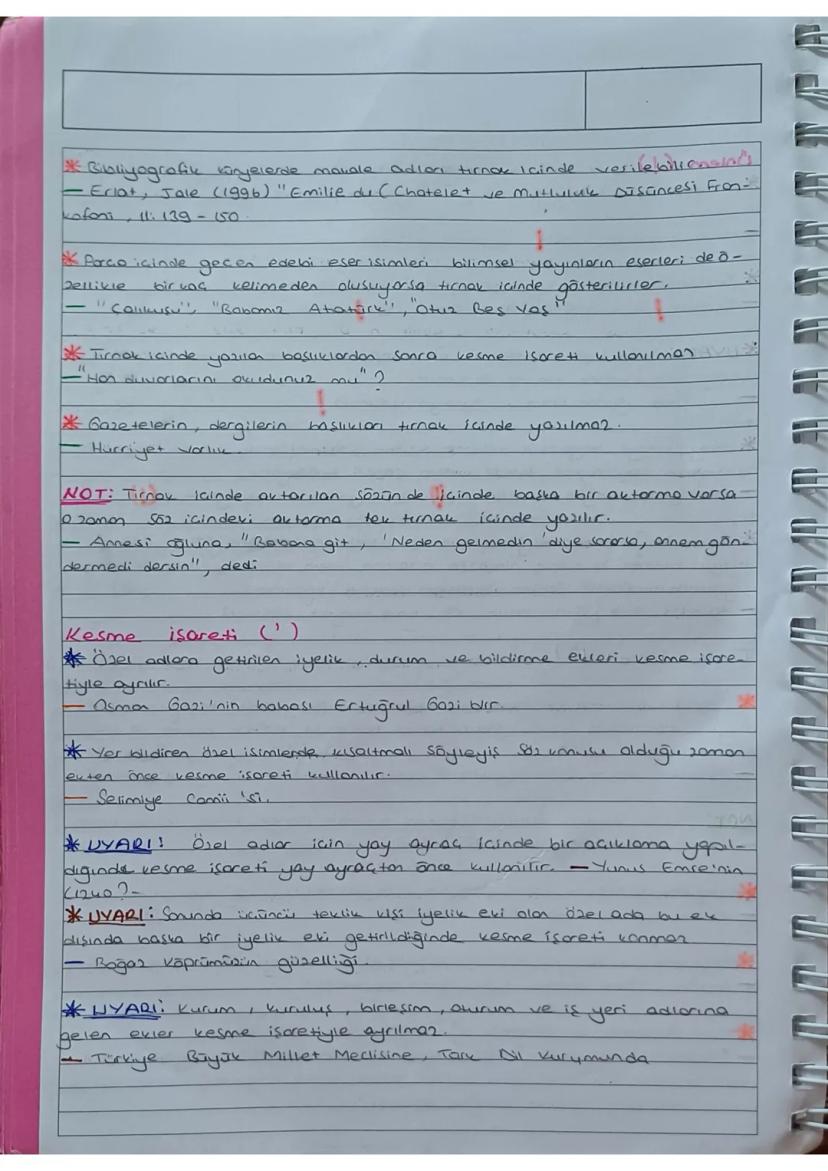 * Bibliyografik künyelerde makale adları tırnak içinde verilebilir
— Erlat, Jale (1996) "Emilie du (Chatelet ve Mutluluk Düşüncesi Fran-
kofoni, 11: 139 - 150
* Parça içinde geçen edebi eser isimleri bilimsel yayınların eserleri de ö-
zellikle bir kaç kelimeden oluşuyorsa tırnak içinde gösterilirler.
— "Çalıkuşu", "Babamız Atatürk", "Otuz Beş Yaş"
* Tırnak içinde yazılan başlıklardan sonra kesme işareti kullanılmaz
— "Han duvarlarını okudunuz mu"?
* Gazetelerin, dergilerin başlıkları tırnak içinde yazılmaz.
— Hürriyet Varlık
NOT: Tırnak içinde aktarılan sözün de içinde başka bir aktarma varsa
o zaman söz içindeki aktarma tek tırnak içinde yazılır.
— Annesi oğluna, "Babana git, 'Neden gelmedin' diye sorarsa, annem gön-
dermedi dersin", dedi
Kesme işareti (')
* Özel adlara getirilen iyelik, durum ve bildirme ekleri kesme işare-
tiyle ayrılır.
— Osman Gazi'nin babası Ertuğrul Gazi'dir.
* Yer bildiren özel isimlerde kısaltmalı söyleyiş söz konusu olduğu zaman
ekten önce kesme işareti kullanılır.
— Selimiye Camii'si.
* UYARI: Özel adlar için yay ayraç içinde bir açıklama yapıl-
dığında kesme işareti yay ayraçtan önce kullanılır. — Yunus Emre'nin
(1240?-
* UYARI: Sonunda üçüncü teklik kişi iyelik eki olan özel ada bu ek
dışında başka bir iyelik eki getirildiğinde kesme işareti konmaz
— Boğaz köprümüzün güzelliği.
* UYARI: Kurum, kuruluş, birleşim, oturum ve iş yeri adlarına
gelen ekler kesme işaretiyle ayrılmaz.
— Türkiye Büyük Millet Meclisine, Türk Dil Kurumunda